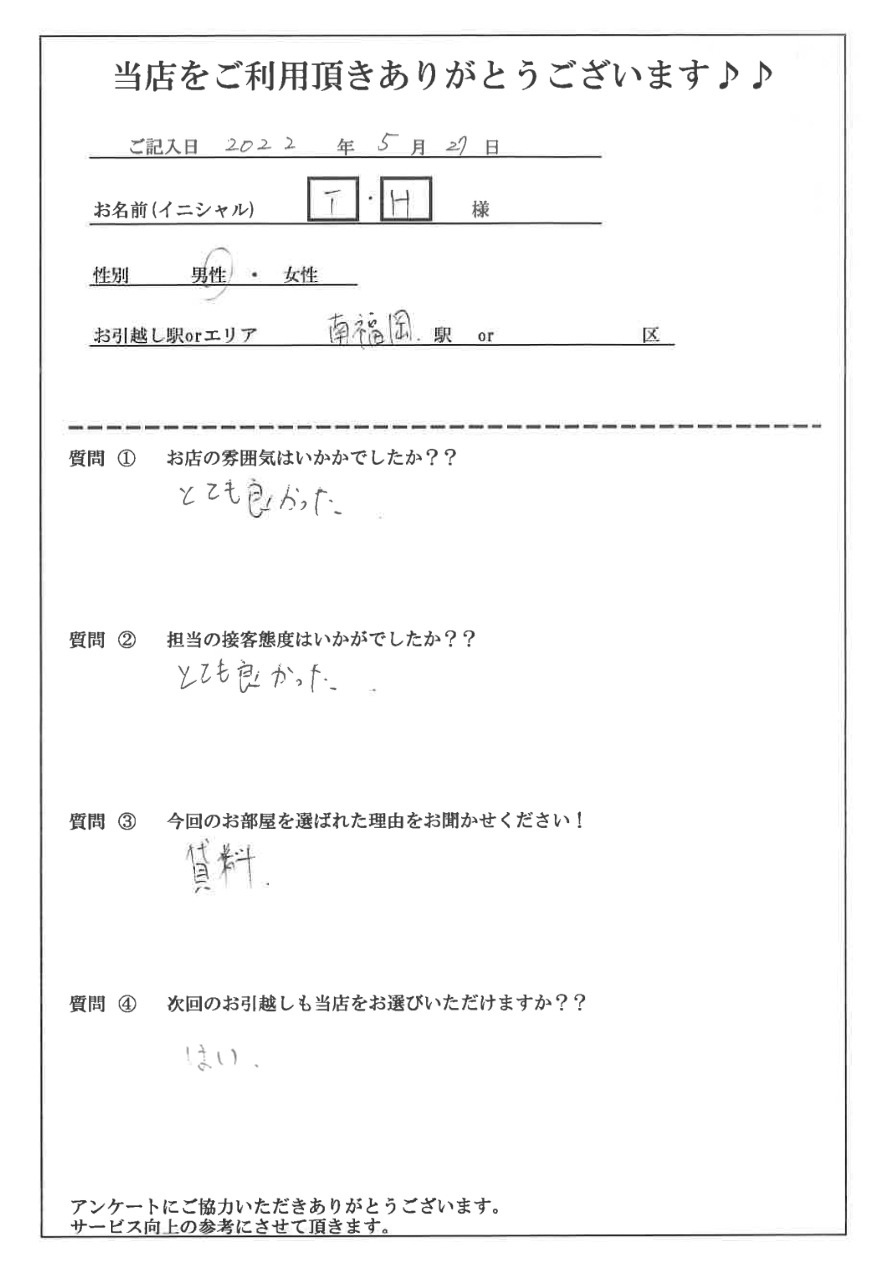 当店をご利用頂きありがとうございます♪♪
ご記入日 2022 年 5 月 27 日
お名前(イニシャル) T・H 様
性別 男性 ・ 女性
お引越し駅orエリア 南福岡 駅 or 区
質問 ① お店の雰囲気はいかかでしたか？？
とても良かった。
質問 ② 担当の接客態度はいかがでしたか？？
とても良かった。
質問 ③ 今回のお部屋を選ばれた理由をお聞かせください！
貸料.
質問 ④ 次回のお引越しも当店をお選びいただけますか？？
はい.
アンケートにご協力いただきありがとうございます。
サービス向上の参考にさせて頂きます。